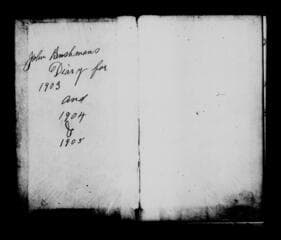 John Bushmans
Diary for
1903
and
1904
&
1905